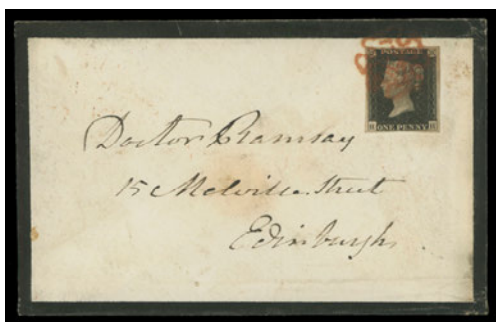 POSTAGE
ONE PENNY
Doctor Ramsay
15 Melville Street
Edinburgh